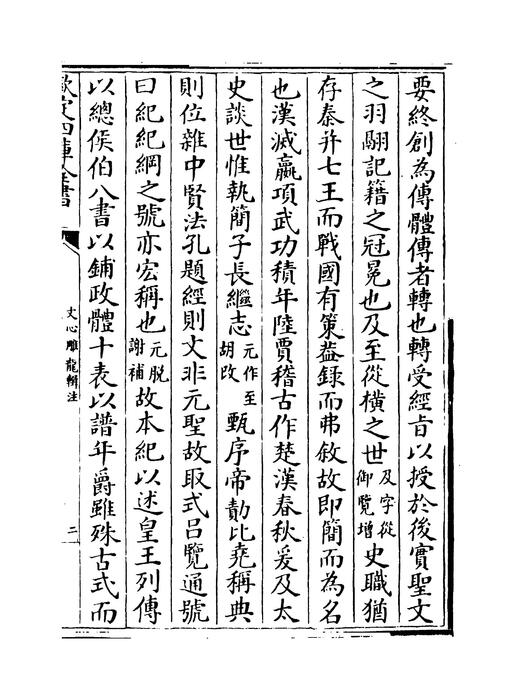 要終創為傳體傳者轉也轉受經㫖以授於後實聖文
之羽翮記籍之冠冕也及至從横之世及字從御覽增史職猶
存秦并七王而戰國有策葢録而弗敘故即簡而為名
也漢滅嬴項武功積年陸賈稽古作楚漢春秋爰及太
史談世惟執簡子長繼志元作至胡改甄序帝勣比堯稱典
則位雜中賢法孔題經則文非元聖故取式呂覽通號
曰紀紀綱之號亦宏稱也元脱謝補故本紀以述皇王列傳
以總侯伯八書以鋪政體十表以譜年爵雖殊古式而
欽定四庫全書
文心雕龍輯注